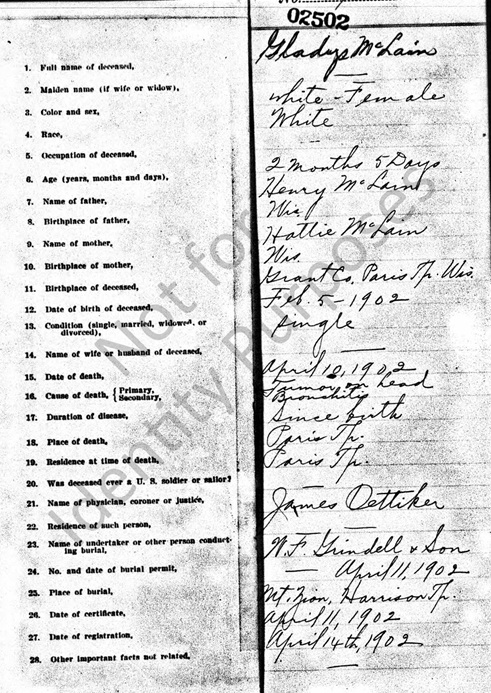 No.
02502
1. Full name of deceased, Gladys McLain
2. Maiden name (if wife or widow), —
3. Color and sex, white - Female
4. Race, White
5. Occupation of deceased,
6. Age (years, months and days), 2 months 5 Days
7. Name of father, Henry McLain
8. Birthplace of father, Wis
9. Name of mother, Hattie McLain
10. Birthplace of mother, Wis.
11. Birthplace of deceased, Grant Co. Paris Tp. Wis.
12. Date of birth of deceased, Feb. 5 - 1902
13. Condition (single, married, widowed, or
divorced), single
14. Name of wife or husband of deceased, —
15. Date of death, April 10, 1902
16. Cause of death, { Primary, Tumor on head
Secondary, Bronchitis
17. Duration of disease, Since birth
18. Place of death, Paris Tp.
19. Residence at time of death, Paris Tp.
20. Was deceased ever a U. S. soldier or sailor? —
21. Name of physician, coroner or justice, James Oettiker
22. Residence of such person, —
23. Name of undertaker or other person conduct-
ing burial, W. F. Grindell & Son
24. No. and date of burial permit, — April 11, 1902
25. Place of burial, Mt. Zion, Harrison Tp.
26. Date of certificate, April 11, 1902
27. Date of registration, April 14th, 1902
28. Other important facts not related, —
Not for
Identity Purposes